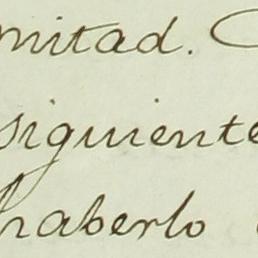 mitad.
siguiente
haberlo